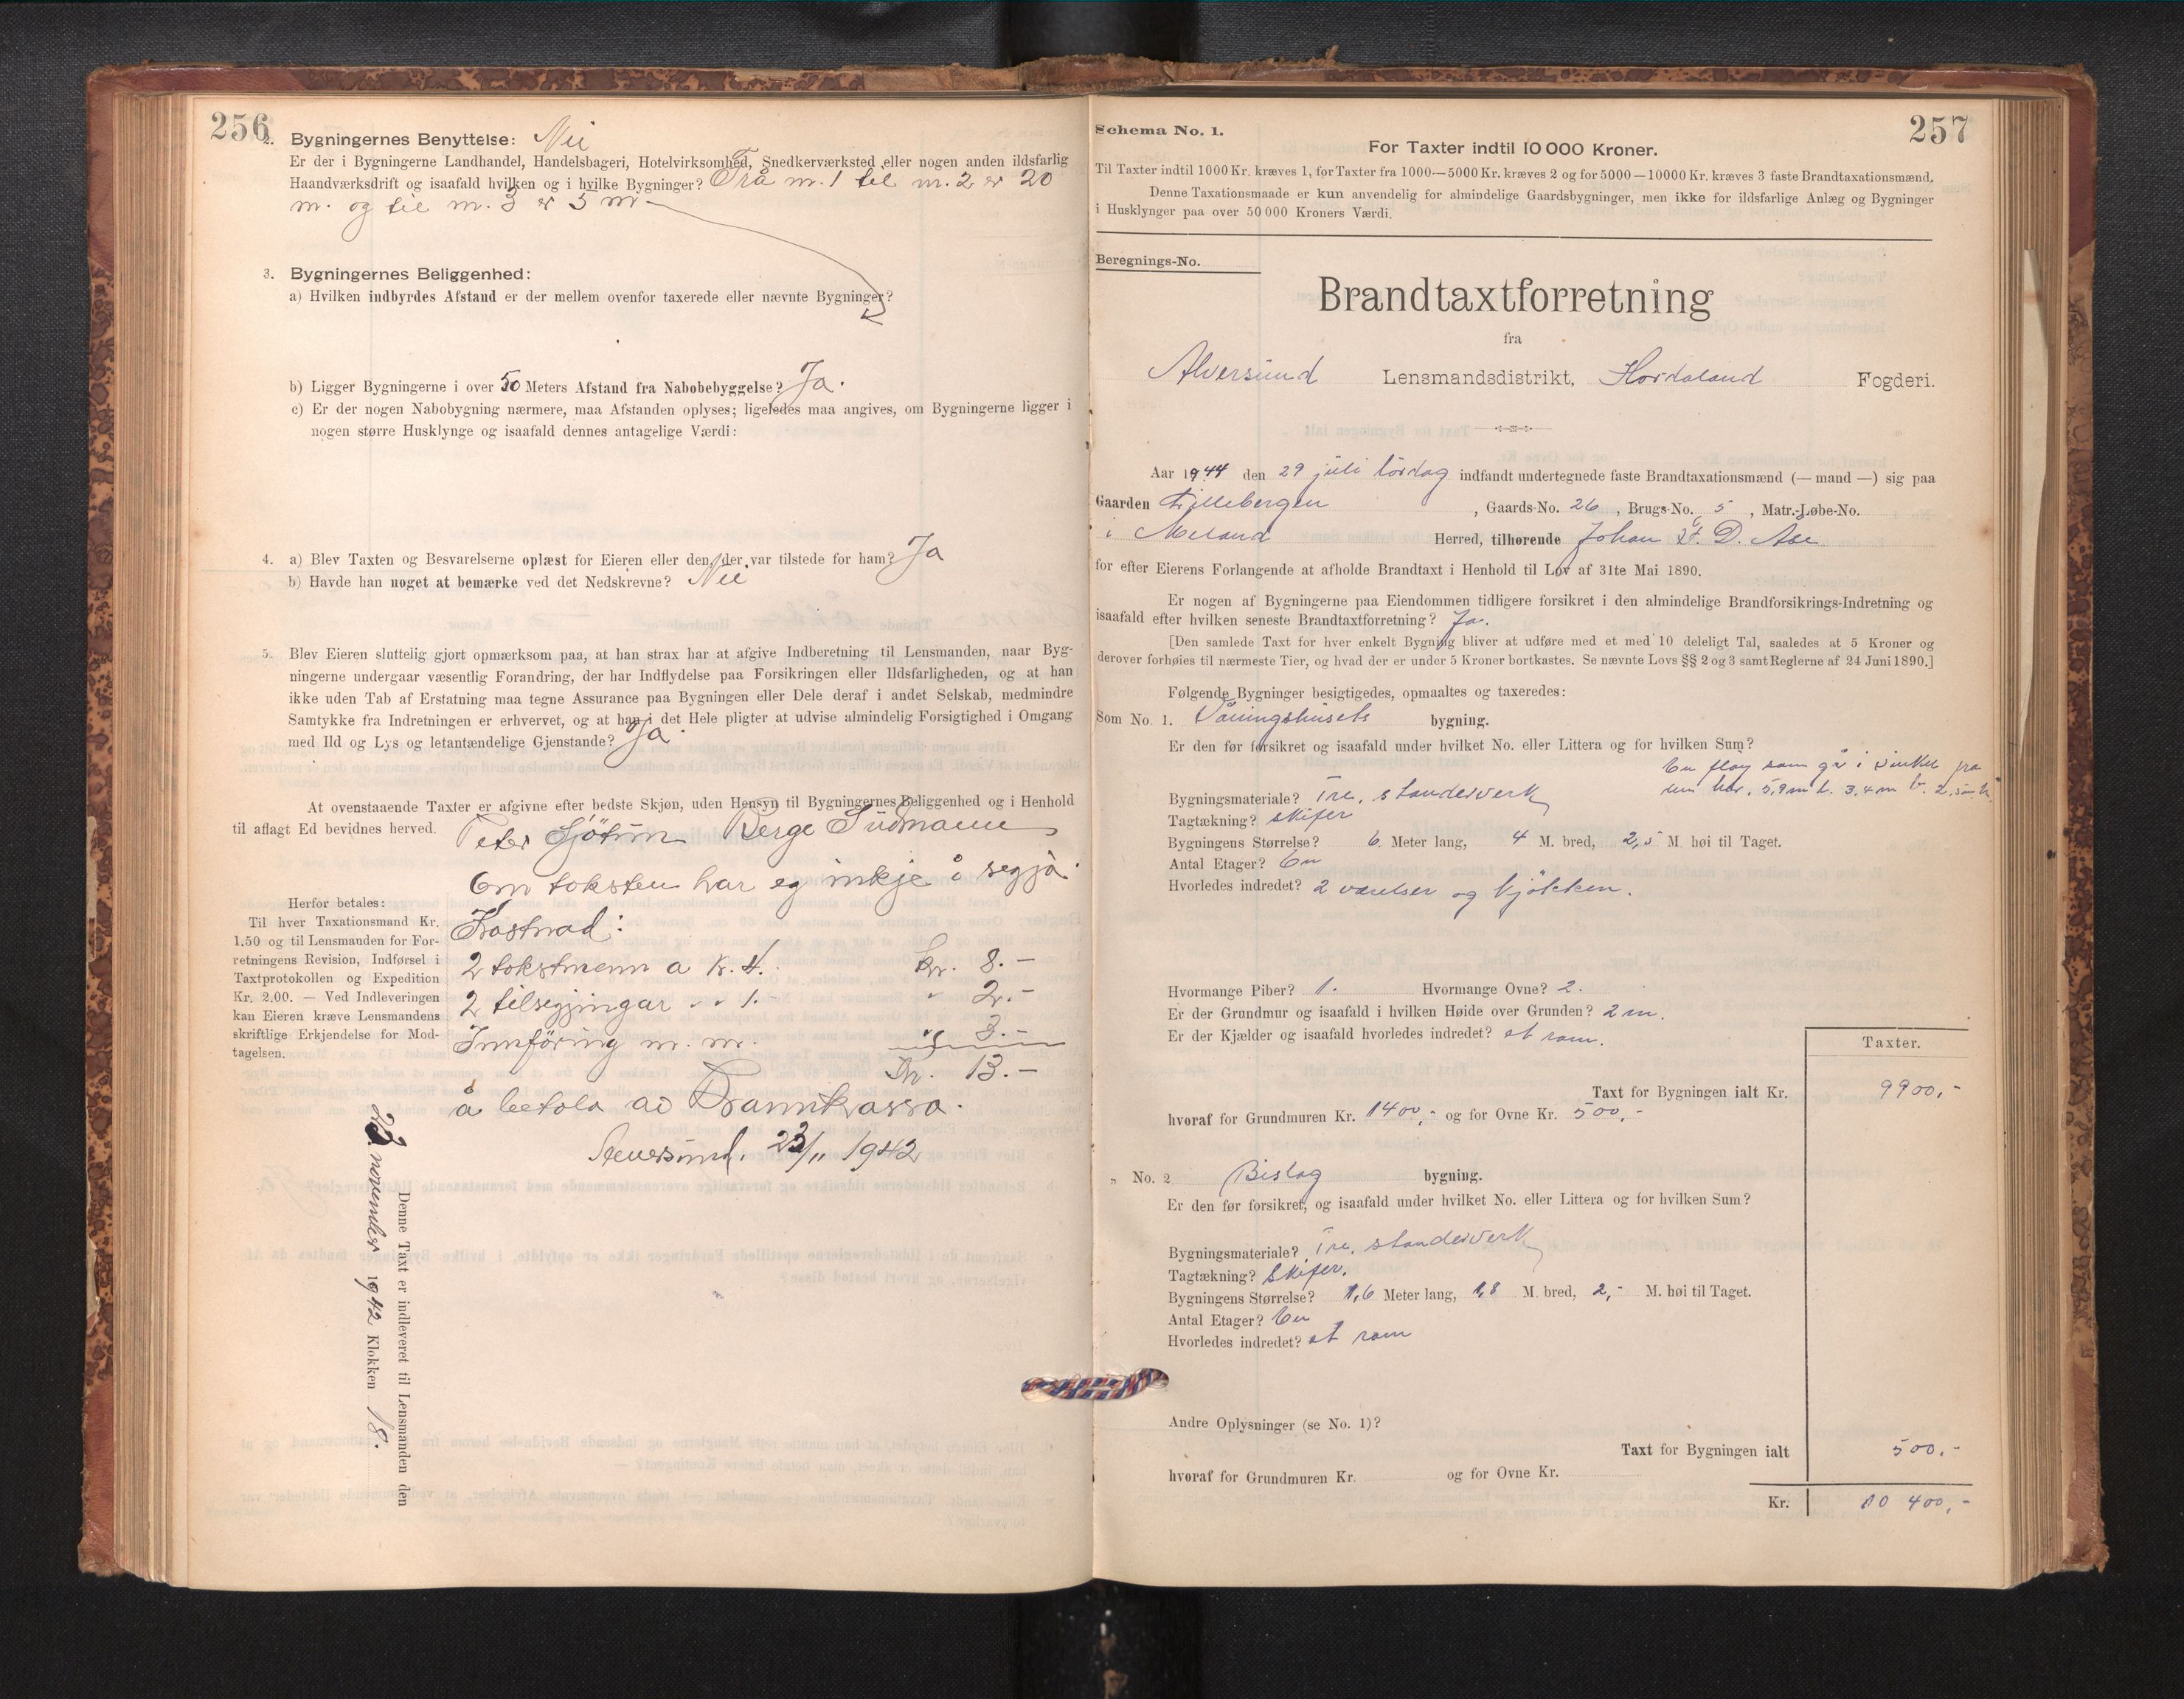 256
2. Bygningernes Benyttelse: Nei
Er der i Bygningerne Landhandel, Handelsbageri, Hotelvirksomhed, Snedkerværksted eller nogen anden ildsfarlig
Haandværksdrift og isaafald hvilken og i hvilke Bygninger? Frå nr. 1 til nr. 2 er 20
m. og til nr. 3 er 5 m
3. Bygningernes Beliggenhed:
a) Hvilken indbyrdes Afstand er der mellem ovenfor taxerede eller nævnte Bygninger?
b) Ligger Bygningerne i over 50 Meters Afstand fra Nabobebyggelse? Ja.
c) Er der nogen Nabobygning nærmere, maa Afstanden oplyses; ligeledes maa angives, om Bygningerne ligger i
nogen større Husklynge og isaafald dennes antagelige Værdi:
4. a) Blev Taxten og Besvarelserne oplæst for Eieren eller den, der var tilstede for ham? Ja
b) Havde han noget at bemærke ved det Nedskrevne? Nei
5. Blev Eieren sluttelig gjort opmærksom paa, at han strax har at afgive Indberetning til Lensmanden, naar Byg-
ningerne undergaar væsentlig Forandring, der har Indflydelse paa Forsikringen eller Ildsfarligheden, og at han
ikke uden Tab af Erstatning maa tegne Assurance paa Bygningen eller Dele deraf i andet Selskab, medmindre
Samtykke fra Indretningen er erhvervet, og at han i det Hele pligter at udvise almindelig Forsigtighed i Omgang
med Ild og Lys og letantændelige Gjenstande? Ja.
At ovenstaaende Taxter er afgivne efter bedste Skjøn, uden Hensyn til Bygningernes Beliggenhed og i Henhold
til aflagt Ed bevidnes herved. Peter Berge
Om taksten har eg inkje å segja.
Herfor betales:
Til hver Taxationsmand Kr.
1.50 og til Lensmanden for For-
retningens Revision, Indførsel i
Taxtprotokollen og Expedition
Kr. 2.00. — Ved Indleveringen
kan Eieren kræve Lensmandens
skriftlige Erkjendelse for Mod-
tagelsen.
Kostnad:
2 takstmenn a kr. 4. kr. 8.-
2 tilsegjingar " " 1.- " 2.-
Innföring m. m. " 3.-
Kr. 13.-
å betala av Brannkassa.
Alversund, 23/11 1942
Denne Taxt er indleveret til Lensmanden den
23 november 1942 Klokken 18.
257
Schema No. 1.
For Taxter indtil 10 000 Kroner.
Til Taxter indtil 1000 Kr. kræves 1, for Taxter fra 1000—5000 Kr. kræves 2 og for 5000—10000 Kr. kræves 3 faste Brandtaxationsmænd.
Denne Taxationsmaade er kun anvendelig for almindelige Gaardsbygninger, men ikke for ildsfarlige Anlæg og Bygninger
i Husklynger paa over 50 000 Kroners Værdi.
Beregnings-No.
Brandtaxtforretning
fra
Alversund Lensmandsdistrikt, Hordaland Fogderi.
Aar 1944 den 29 juli lördag indfandt undertegnede faste Brandtaxationsmænd (— mand —) sig paa
Gaarden Lillebergen, Gaards-No. 26, Brugs-No. 5, Matr.-Løbe-No.
i Meland Herred, tilhørende Johan D. Ase
for efter Eierens Forlangende at afholde Brandtaxt i Henhold til Lov af 31te Mai 1890.
Er nogen af Bygningerne paa Eiendommen tidligere forsikret i den almindelige Brandforsikrings-Indretning og
isaafald efter hvilken seneste Brandtaxtforretning? Ja.
[Den samlede Taxt for hver enkelt Bygning bliver at udføre med et med 10 deleligt Tal, saaledes at 5 Kroner og
derover forhøies til nærmeste Tier, og hvad der er under 5 Kroner bortkastes. Se nævnte Lovs §§ 2 og 3 samt Reglerne af 24 Juni 1890.]
Følgende Bygninger besigtigedes, opmaaltes og taxeredes:
Som No. 1. Våningshusets bygning.
Er den før forsikret og isaafald under hvilket No. eller Littera og for hvilken Sum?
En fløy som går i vinkel fra
5,9 m l. 3,4 m b. 2,5 m h.
Bygningsmateriale? Tre, standerverk
Tagtækning? skifer
Bygningens Størrelse? 6 Meter lang, 4 M. bred, 2,5 M. høi til Taget.
Antal Etager? En
Hvorledes indredet? 2 værelser og kjökken.
Hvormange Piber? 1. Hvormange Ovne? 2.
Er der Grundmur og isaafald i hvilken Høide over Grunden? 2 m.
Er der Kjælder og isaafald hvorledes indredet? et rom.
Taxter.
Taxt for Bygningen ialt Kr. 9900,-
hvoraf for Grundmuren Kr. 1400,- og for Ovne Kr. 500,-
" No. 2 Bislag bygning.
Er den før forsikret, og isaafald under hvilket No. eller Littera og for hvilken Sum?
Bygningsmateriale? Tre, standerverk
Tagtækning? Skifer.
Bygningens Størrelse? 1,6 Meter lang, 1,8 M. bred, 2,- M. høi til Taget.
Antal Etager? En
Hvorledes indredet? et rom
Andre Oplysninger (se No. 1)?
Taxt for Bygningen ialt 500,-
hvoraf for Grundmuren Kr. og for Ovne Kr.
Kr. 10 400,-